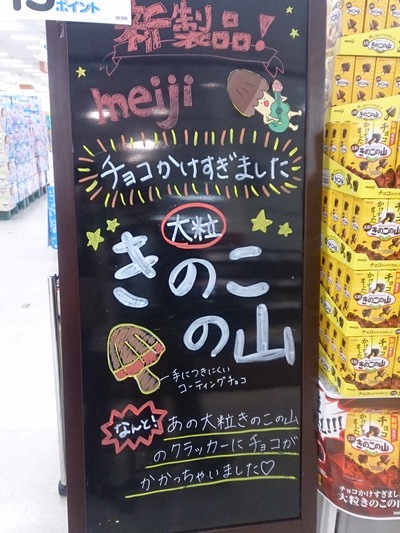 ポイント
新製品!
meiji
チョコかけすぎました
大粒
きのこ
の山
手につきにくい
コーティングチョコ
なんと!
あの大粒きのこの山
のクラッカーにチョコが
かかっちゃいました♡
meiji
きのこの山
きのこの山
きのこの山
きのこの山
チョコかけすぎました
大粒きのこの山